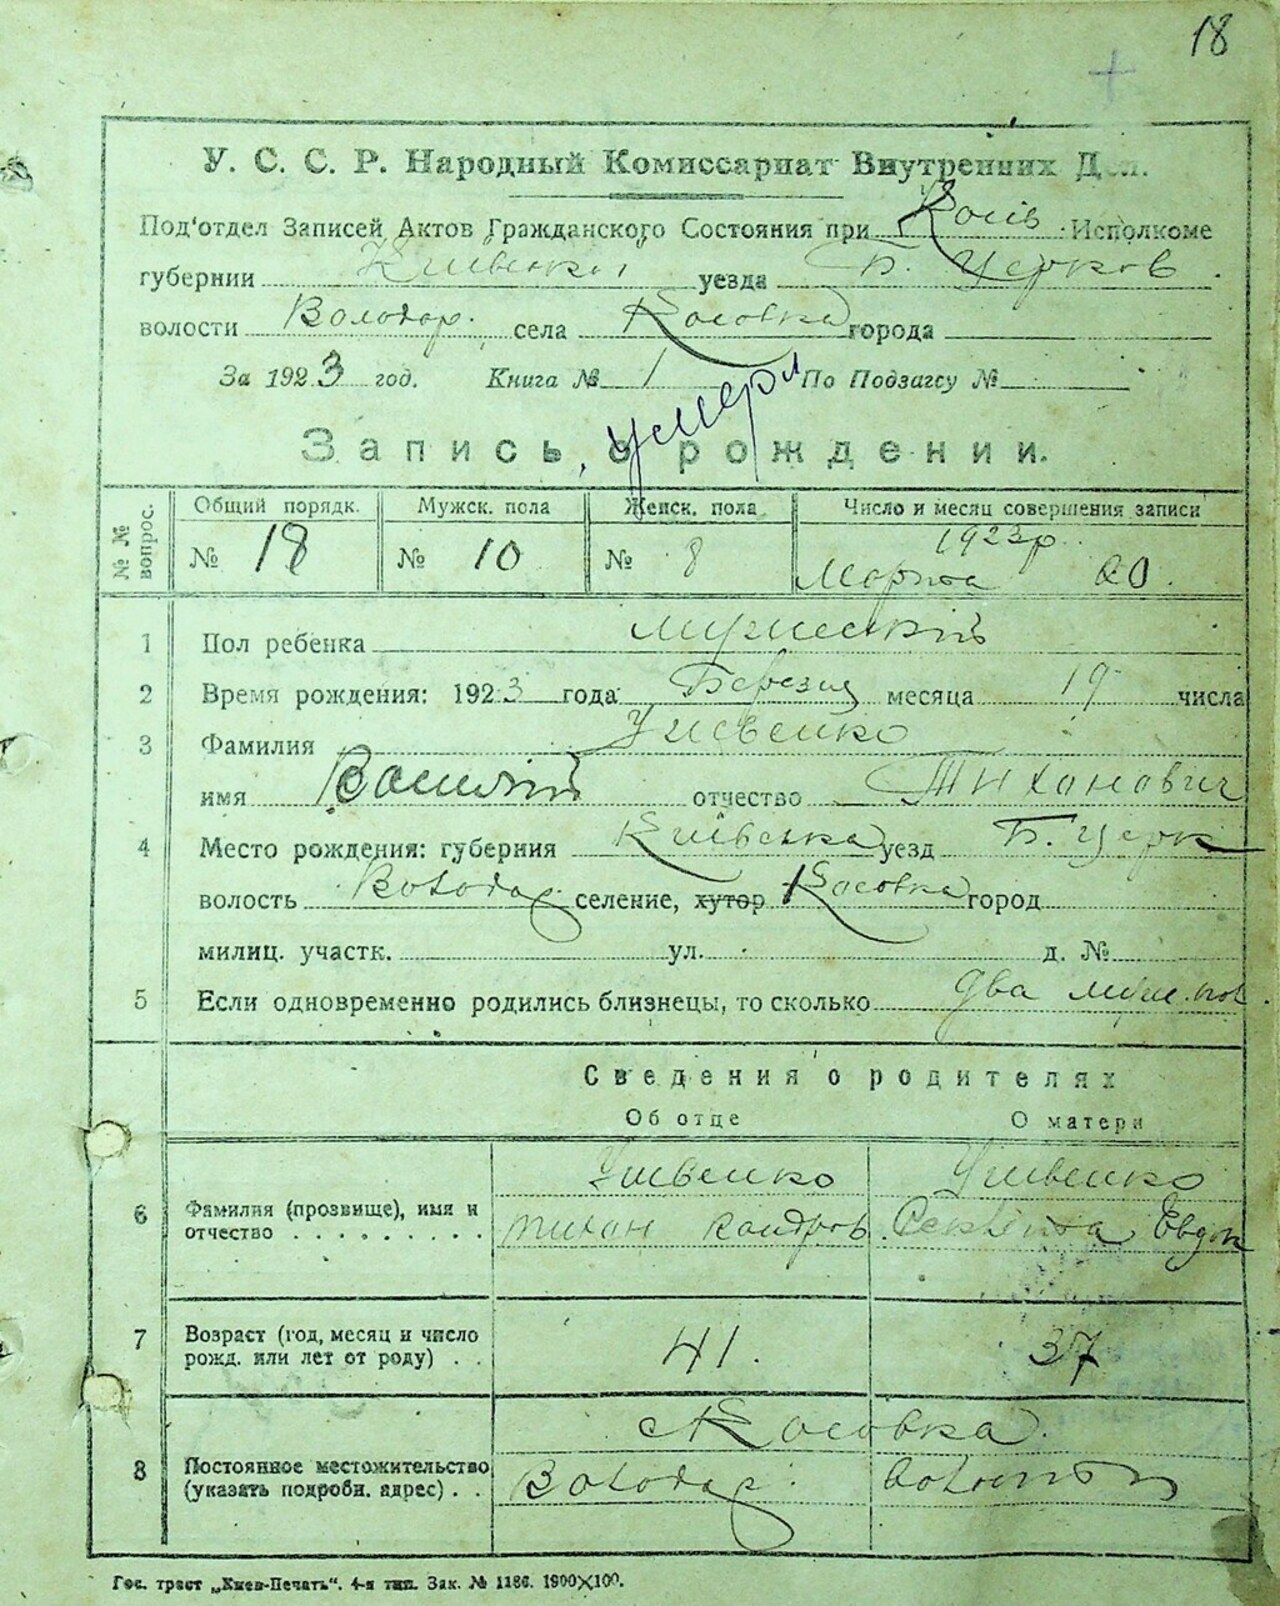 18
У. С. С. Р. Народный Комиссариат Внутренних Дел.
Под'отдел Записей Актов Гражданского Состояния при Косів. Исполкоме
губернии Київської уезда Б. Церков.
волости Володар. села Косовка города
За 1923 год. Книга № 1 По Подзагсу №
умерл
Запись о рождении.
№ № вопрос. Общий порядк. Мужск. пола Женск. пола Число и месяц совершения записи
№ 18 № 10 № 8 1923р. Марта 20.
1 Пол ребенка мужеский
2 Время рождения: 1923 года Березня месяца 19 числа
3 Фамилия
имя Василій отчество Тиханович
4 Место рождения: губерния Київська уезд Б. Церк
волость Володар. селение, хутор Косовка город
милиц. участк. ул. д. №
5 Если одновременно родились близнецы, то сколько два муж. пол.
Сведения о родителях
Об отце О матери
6 Фамилия (прозвище), имя и
отчество Тихан Кондров.
7 Возраст (год, месяц и число
рожд. или лет от роду) . . 41. 37
с Косовка.
8 Постоянное местожительство
(указать подробн. адрес) . . Володар. волости
Гос. трест „Киев-Печать“. 4-я тип. Зак. № 1186. 1900×100.